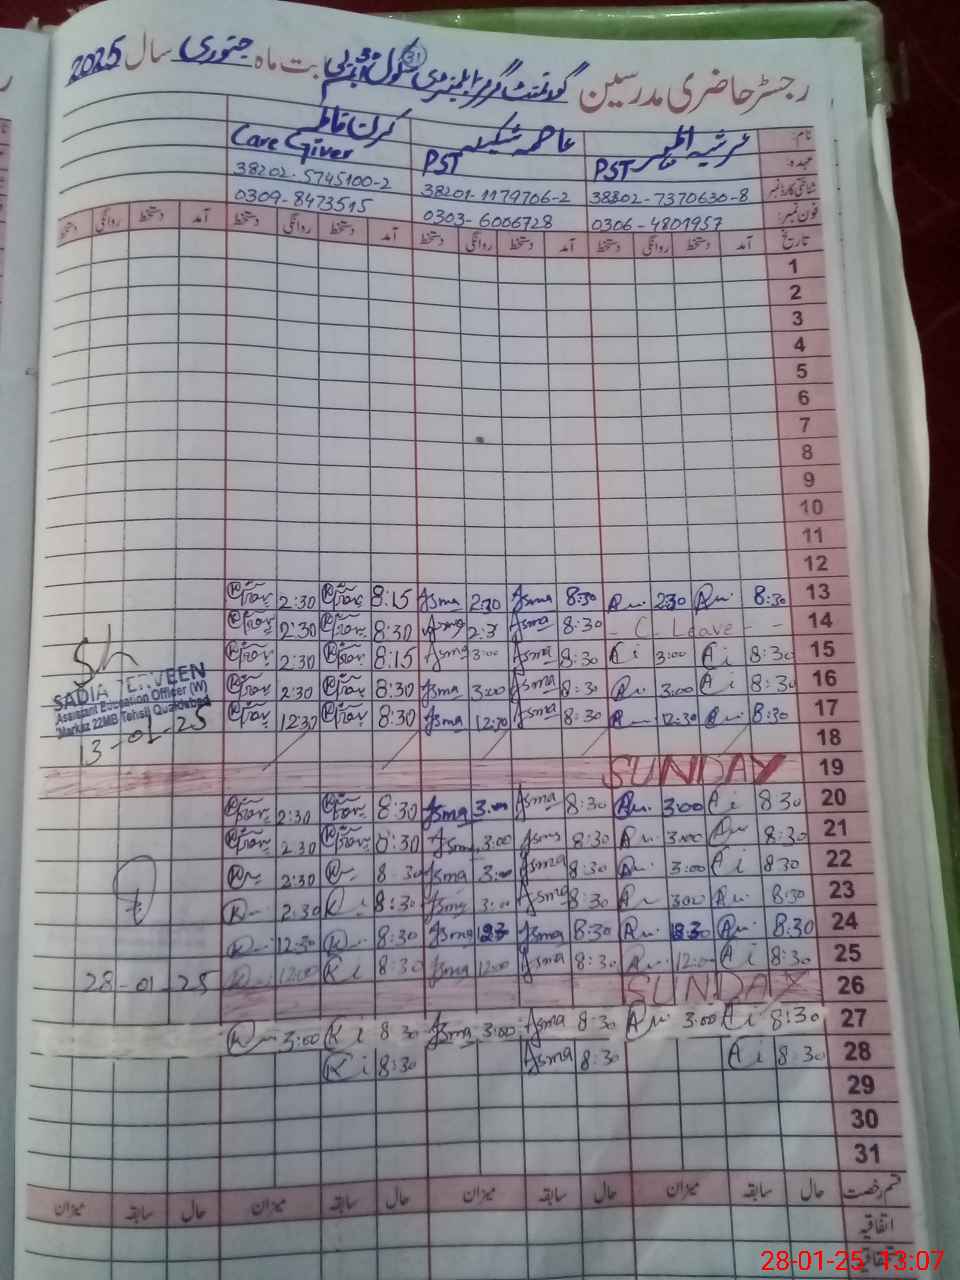 رجسٹر حاضری مدرسین گورنمنٹ گرلز ایلیمنٹری سکول بابت ماہ جنوری سال 2025
نام: عرشیہ عاصمہ سکینہ کرن فاطمہ
عہدہ: PST PST Care Giver
شناختی کارڈ نمبر 38202-7370630-8 38201-1179706-2 38202-5745100-2
فون نمبر: 0306-4801957 0303-6006728 0309-8473515
تاریخ آمد دستخط روانگی دستخط آمد دستخط روانگی دستخط آمد دستخط روانگی دستخط آمد دستخط روانگی دستخط
1
2
3
4
5
6
7
8
9
10
11
12
13 8:30 2:30 8:30 Asma 2:30 Asma 8:15 2:30
14 - C- Leave - - 8:30 Asma 2:3 Asma 8:30 2:30
15 8:30 Ai 3:00 Ai 8:30 Asma 3:00 Asma 8:15 2:30
16 8:30 Ai 3:00 8:30 Asma 3:00 Asma 8:30 2:30
17 8:30 12:30 8:30 Asma 12:30 Asma 8:30 12:30
18
19 SUNDAY
20 8:30 Ai 3:00 8:30 Asma 3:00 Asma 8:30 2:30
21 8:30 3:00 8:30 Asma 3:00 Asma 8:30 2:30
22 8:30 Ai 3:00 8:30 Asma 3:00 Asma 8:30 2:30
23 8:30 3:00 8:30 Asma 3:00 Asma 8:30 Ki 2:30
24 8:30 12:30 8:30 Asma 12:3 Asma 8:30 12:30
25 8:30 Ai 12:00 8:30 Asma 12:00 Asma 8:30 Ki 12:00
26 SUNDAY
27 8:30 Ai 3:00 8:30 Asma 3:00 Asma 8:30 Ki 3:00
28 8:30 Ai 8:30 Asma 8:30 Ki
29
30
31
SADIA PERVEEN
Assistant Education Officer (W)
Markaz 22MB Tehsil Quaidabad
13-01-25
28-01-25
قسم رخصت حال سابقہ میزان حال سابقہ میزان حال سابقہ میزان حال سابقہ میزان
اتفاقیہ
28-01-25 13:07